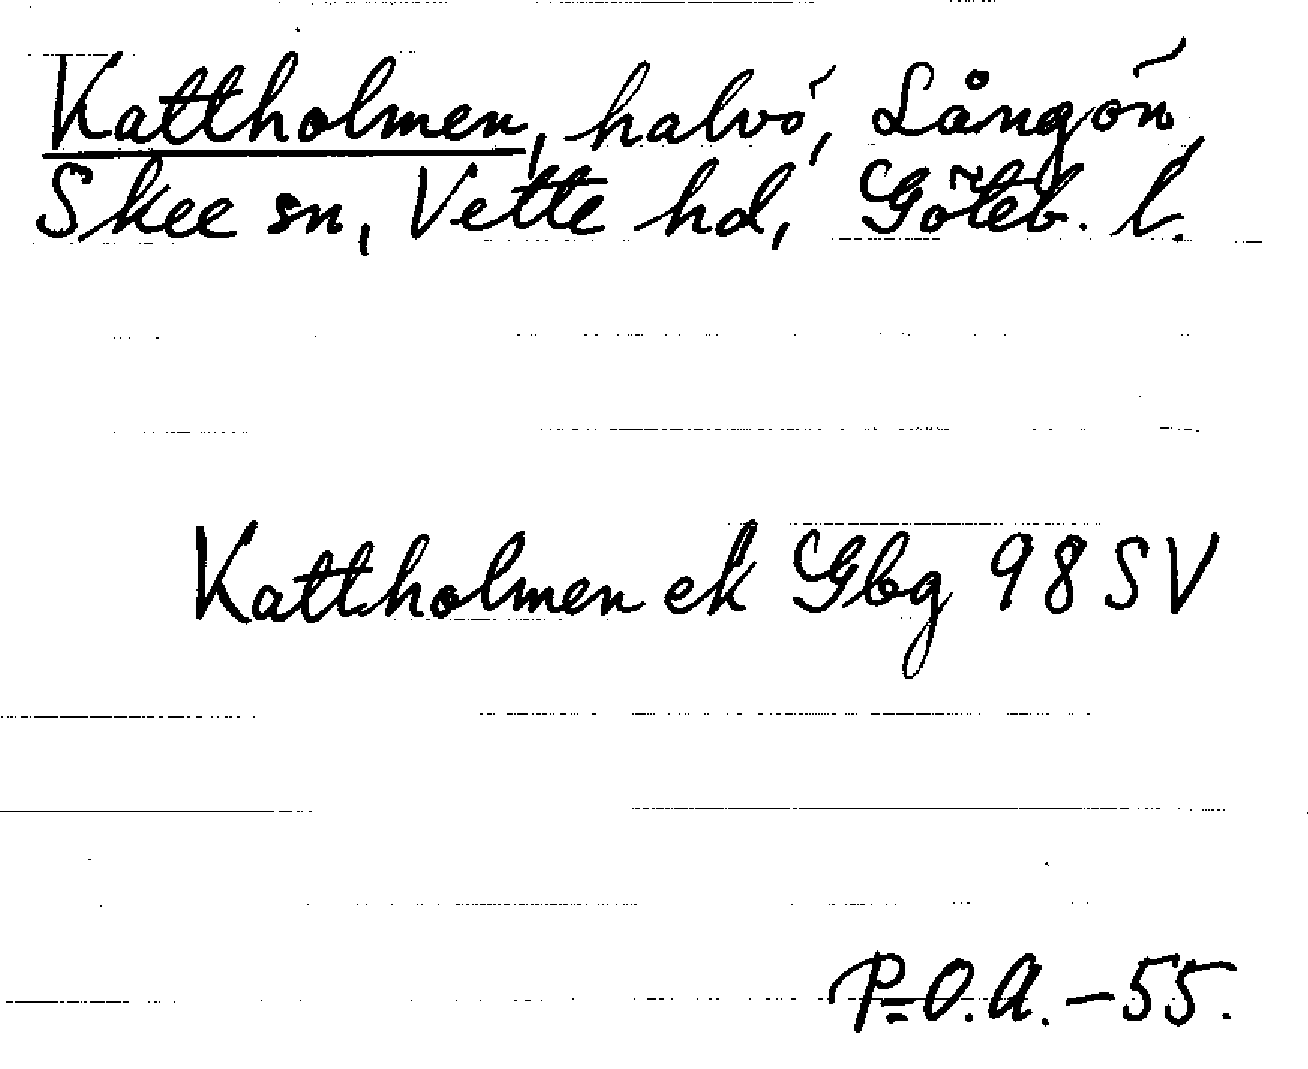 Kattholmen, halvö, Långön,
Skee sn, Vette hd, Göteb. l.
Kattholmen ek Gbg 98 SV
P-O.A. -55.